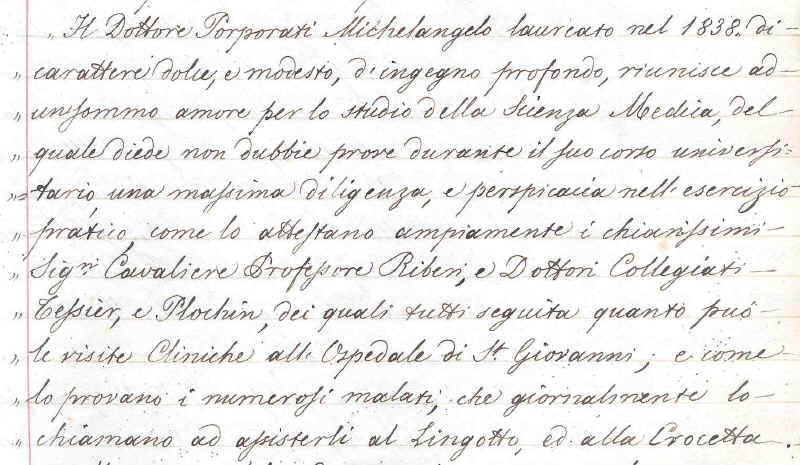 „ Il Dottore Porporati Michelangelo laureato nel 1838. di-
„ carattere dolce, e modesto, d'ingegno profondo, riunisce ad-
„ un sommo amore per lo studio della Scienza Medica, del-
„ quale diede non dubbie prove durante il suo corso universi=
„=tario, una massima diligenza, e perspicacia nell'esercizio
„ pratico, come lo attestano ampiamente i chiarissimi-
„ Sig.ri Cavaliere Professore Riberi, e Dottori Collegiati-
„ Tessier, e Plochin, dei quali tutti seguita quanto può-
„ le visite Cliniche all'Ospedale di St. Giovanni; e come-
„ lo provano i numerosi malati, che giornalmente lo-
„ chiamano ad assisterli al Lingotto, ed alla Crocetta.